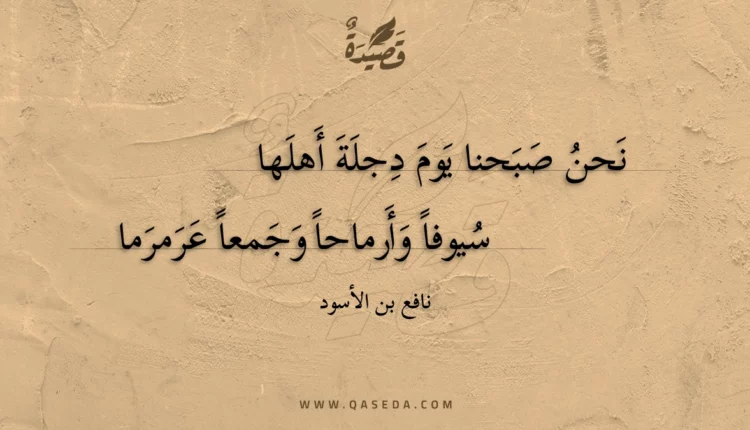 قَصِيدَةٌ
نَحنُ صَبَحنا يَومَ دِجلَةَ أَهلَها
سُيوفاً وَأَرماحاً وَجَمعاً عَرَمرَما
نافع بن الأسود
WWW.QASEDA.COM